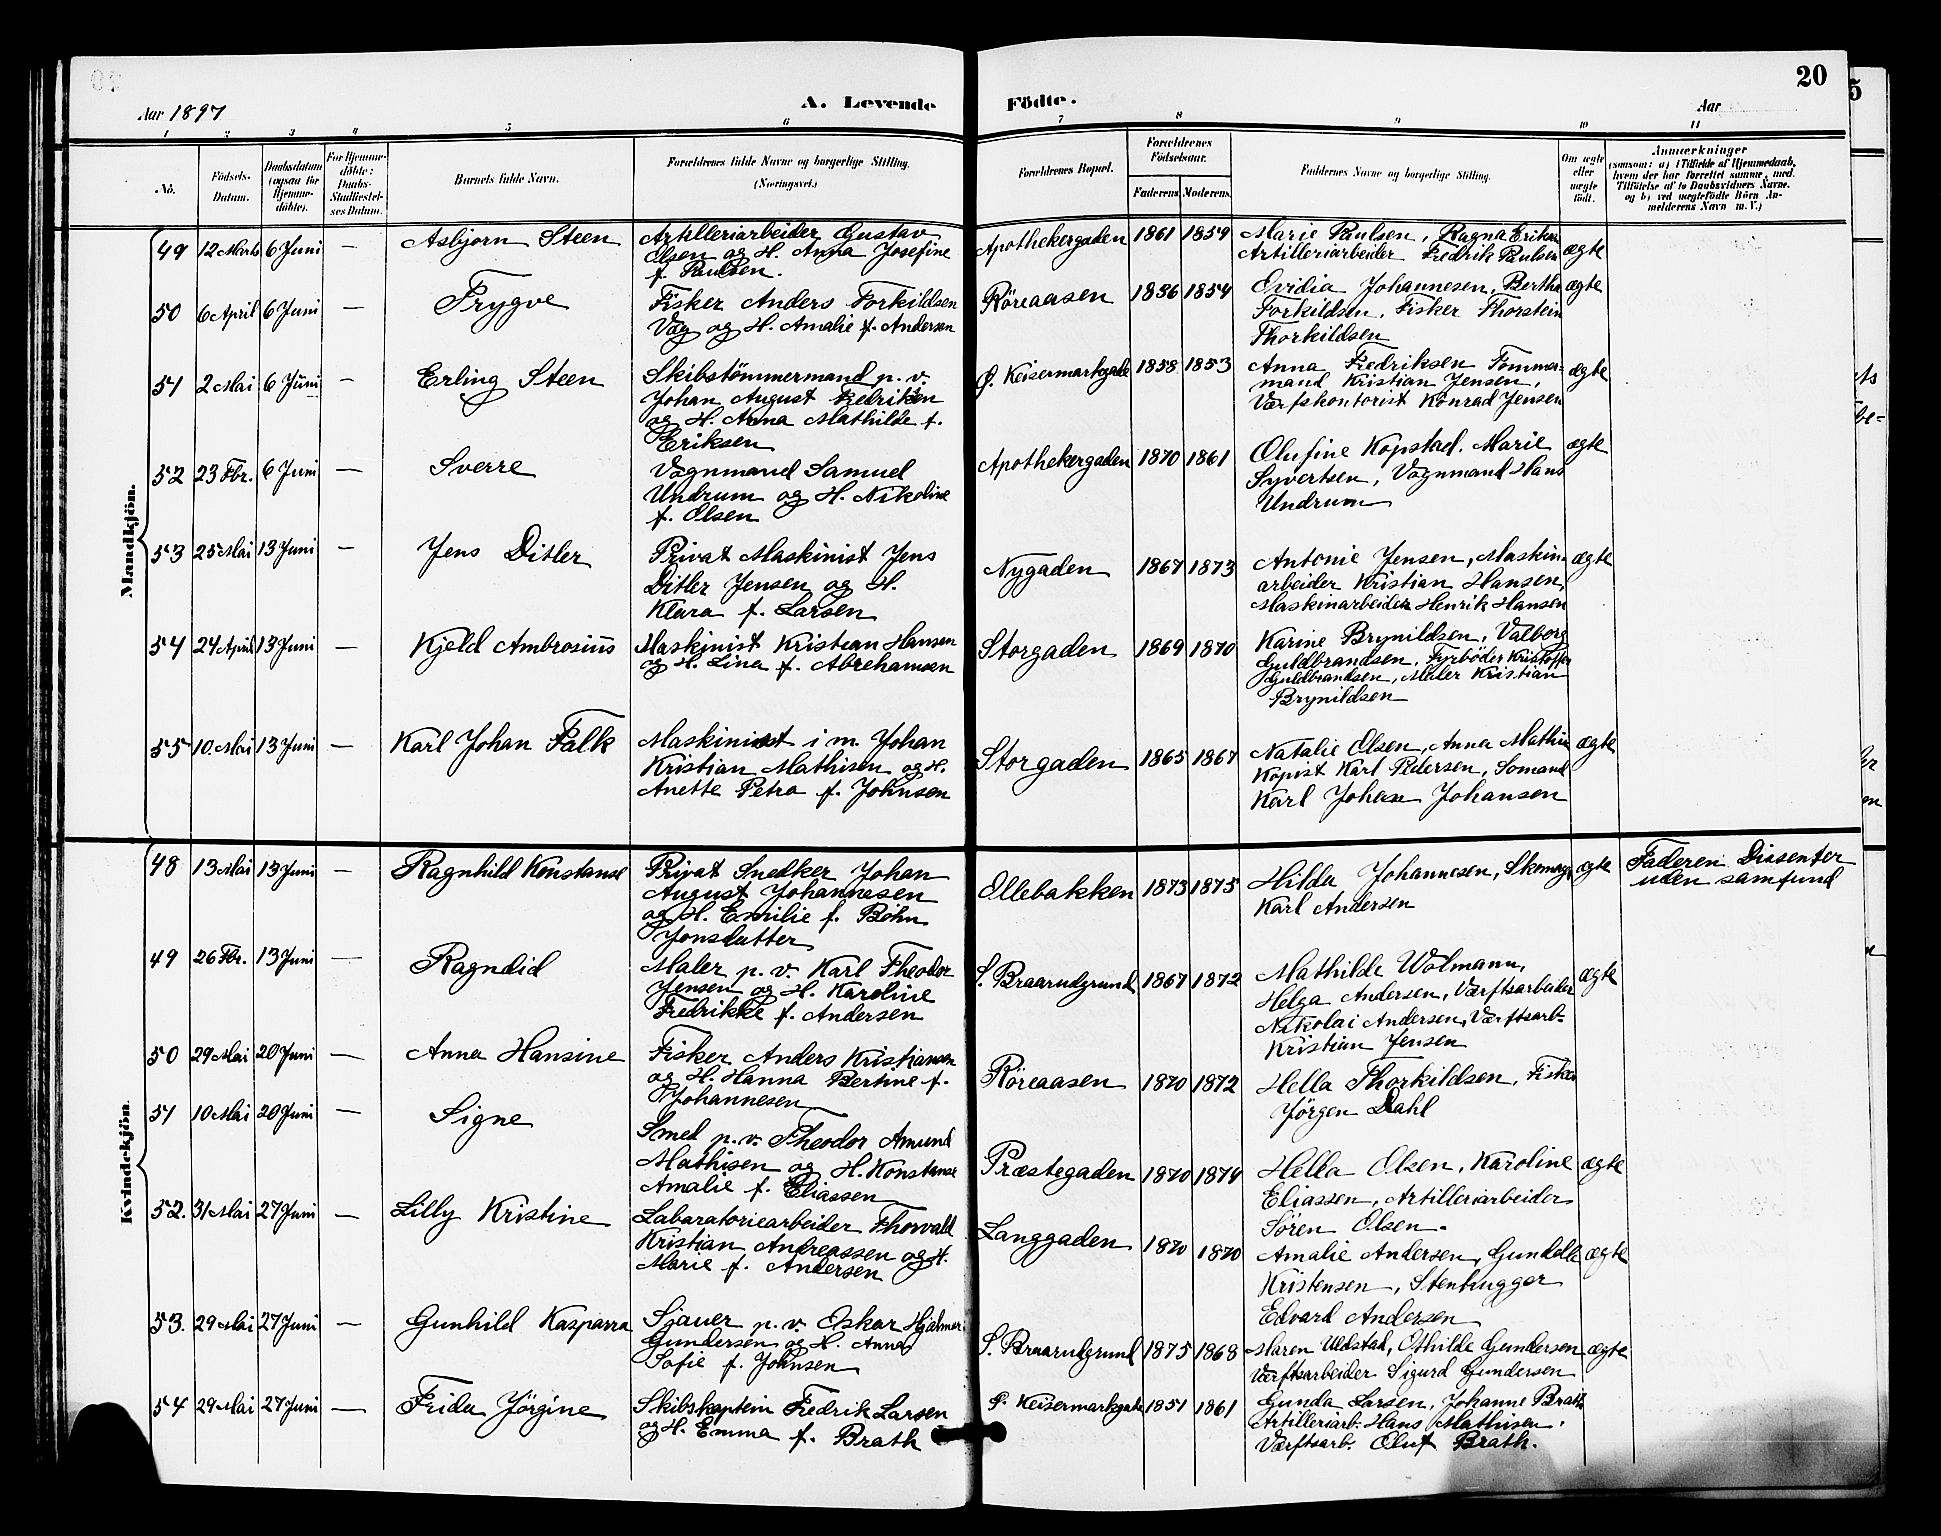 20
Aar 1897
A. Levende
Födte.
Aar
1 2 3 4 5 6 7 8 9 10 11
No.
Födsels-Datum.
Daabsdatum (ogsaa for Hjemme-döbte).
For Hjemme-döbte: Daabs-Stadfæstel-ses Datum.
Barnets fulde Navn.
Forældrenes fulde Navne og borgerlige Stilling.
(Næringsvei.)
Forældrenes Bopæl.
Forældrenes Födselsaar.
Faderens. Moderens.
Faddernes Navne og borgerlige Stilling.
Om ægte eller uægte födt.
Anmærkninger
(saasom: a) i Tilfælde af Hjemmedaab,
hvem der har forrettet samme, med
Tilföielse af to Daabsvidners Navne.
og b) ved uægtefödte Börn An-
melderens Navn m. V.)
Mandkjön.
49 12 Marts 6 Juni — Asbjorn Steen
Artilleriarbeider Gustav
Olsen og H. Anna Josefine
f. Paulsen.
Apothekergaden 1861 1859
Marie Paulsen, Ragna Eriksen
Artilleriarbeider Fredrik Paulsen
ægte
50 6 April 6 Juni — Trygve
Fisker Anders Torkildsen
Vog og H. Amalie f. Andersen
Röreaasen 1856 1854
Ovidia Johannesen, Bertha
Torkildsen, Fisker Thorstein
Thorkildsen
ægte
51 2 Mai 6 Juni — Erling Steen
Skibstömmermand p. v.
Johan August Fredriksen
og H. Anna Mathilde f.
Eriksen
Ø. Keisermarkgade 1858 1853
Anna Fredriksen Tömmer-
mand Kristian Jensen,
Værfskontorist Konrad Jensen
ægte
52 23 Fbr. 6 Juni — Sverre
Vognmand Samuel
Undrum og H. Nikoline
f. Olsen
Apothekergaden 1870 1861
Olufine Kopstad. Marie
Syvertsen, Vognmand Hans
Undrum
ægte
53 25 Mai 13 Juni — Jens Ditler
Privat Maskinist Jens
Ditler Jensen og H.
Klara f. Larsen
Nygaden 1867 1873
Antonie Jensen, Maskin-
arbeider Kristian Hansen,
Maskinarbeider Henrik Hansen
ægte
54 24 April 13 Juni — Kjeld Ambrosius
Maskinist Kristian Hansen
og H. Lina f. Abrehamsen
Storgaden 1869 1870
Karine Brynildsen, Valborg
Guldbrandsen, Fyrböder Kristoffer
Guldbrandsen, Maler Kristian
Brynildsen
55 10 Mai 13 Juni — Karl Johan Falk
Maskinist i m. Johan
Kristian Mathisen og H.
Anette Petra f. Johnsen
Storgaden 1865 1867
Natalie Olsen, Anna Mathi
Kopist Karl Pedersen, Somand
Karl Johan Johansen
ægte
Kvindekjön.
48 13 Mai 13 Juni — Ragnhild Konstanse
Privat Snedker Johan
August Johannesen
og H. Emilie f. Böhn
Jonsdatter
Ollebakken 1873 1875
Hilda Johannesen, Skomag
Karl Andersen
ægte
Faderen Dissenter
uden samfund
49 26 Fbr. 13 Juni — Ragndid
Maler p. v. Karl Theodor
Jensen og H. Karoline
Fredrikke f. Andersen
S. Braarudgrund 1867 1872
Mathilde Wolmann,
Helga Andersen, Værftsarbeider
Nikolai Andersen, Værftsarb-
Kristian Jensen
ægte
50 29 Mai 20 Juni — Anna Hansine
Fisker Anders Kristjansen
og H. Hanna Bertine f.
Johannesen
Röreaasen 1870 1872
Hella Thorkildsen, Fisker
Jörgen Dahl
51 10 Mai 20 Juni — Signe
Smed p. v. Theodor Amund
Mathisen og H. Konstanse
Amalie f. Eliassen
Præstegaden 1870 1874
Hella Olsen, Karoline
Eliassen, Artilleriarbeider
Sören Olsen.
ægte
52. 31 Mai 27 Juni — Lilly Kristine
Labaratoriearbeider Thorvald
Kristian Andreassen og H.
Marie f. Andersen
Langgaden 1870 1870
Amalie Andersen, Gunelle
Kristensen, Stenhugger
Edvard Andersen
ægte
53. 29 Mai 27 Juni — Gunhild Kasparra
Sjauer p. v. Oskar Hjalmer
Gundersen og H. Anna
Sofie f. Johnsen
S. Braarudgrund 1875 1868
Maren Uldstad, Othilde Gundersen
Værftsarbeider Sigurd Gundersen
ægte
54 29 Mai 27 Juni — Frida Jörgine
Skibskaptein Fredrik Larsen
og H. Emma f. Brath
Ø. Keisermarkgade 1851 1861
Gunda Larsen, Johanne Brath
Artilleriarb. Hans Mathisen.
Værftsarb. Oluf Brath.